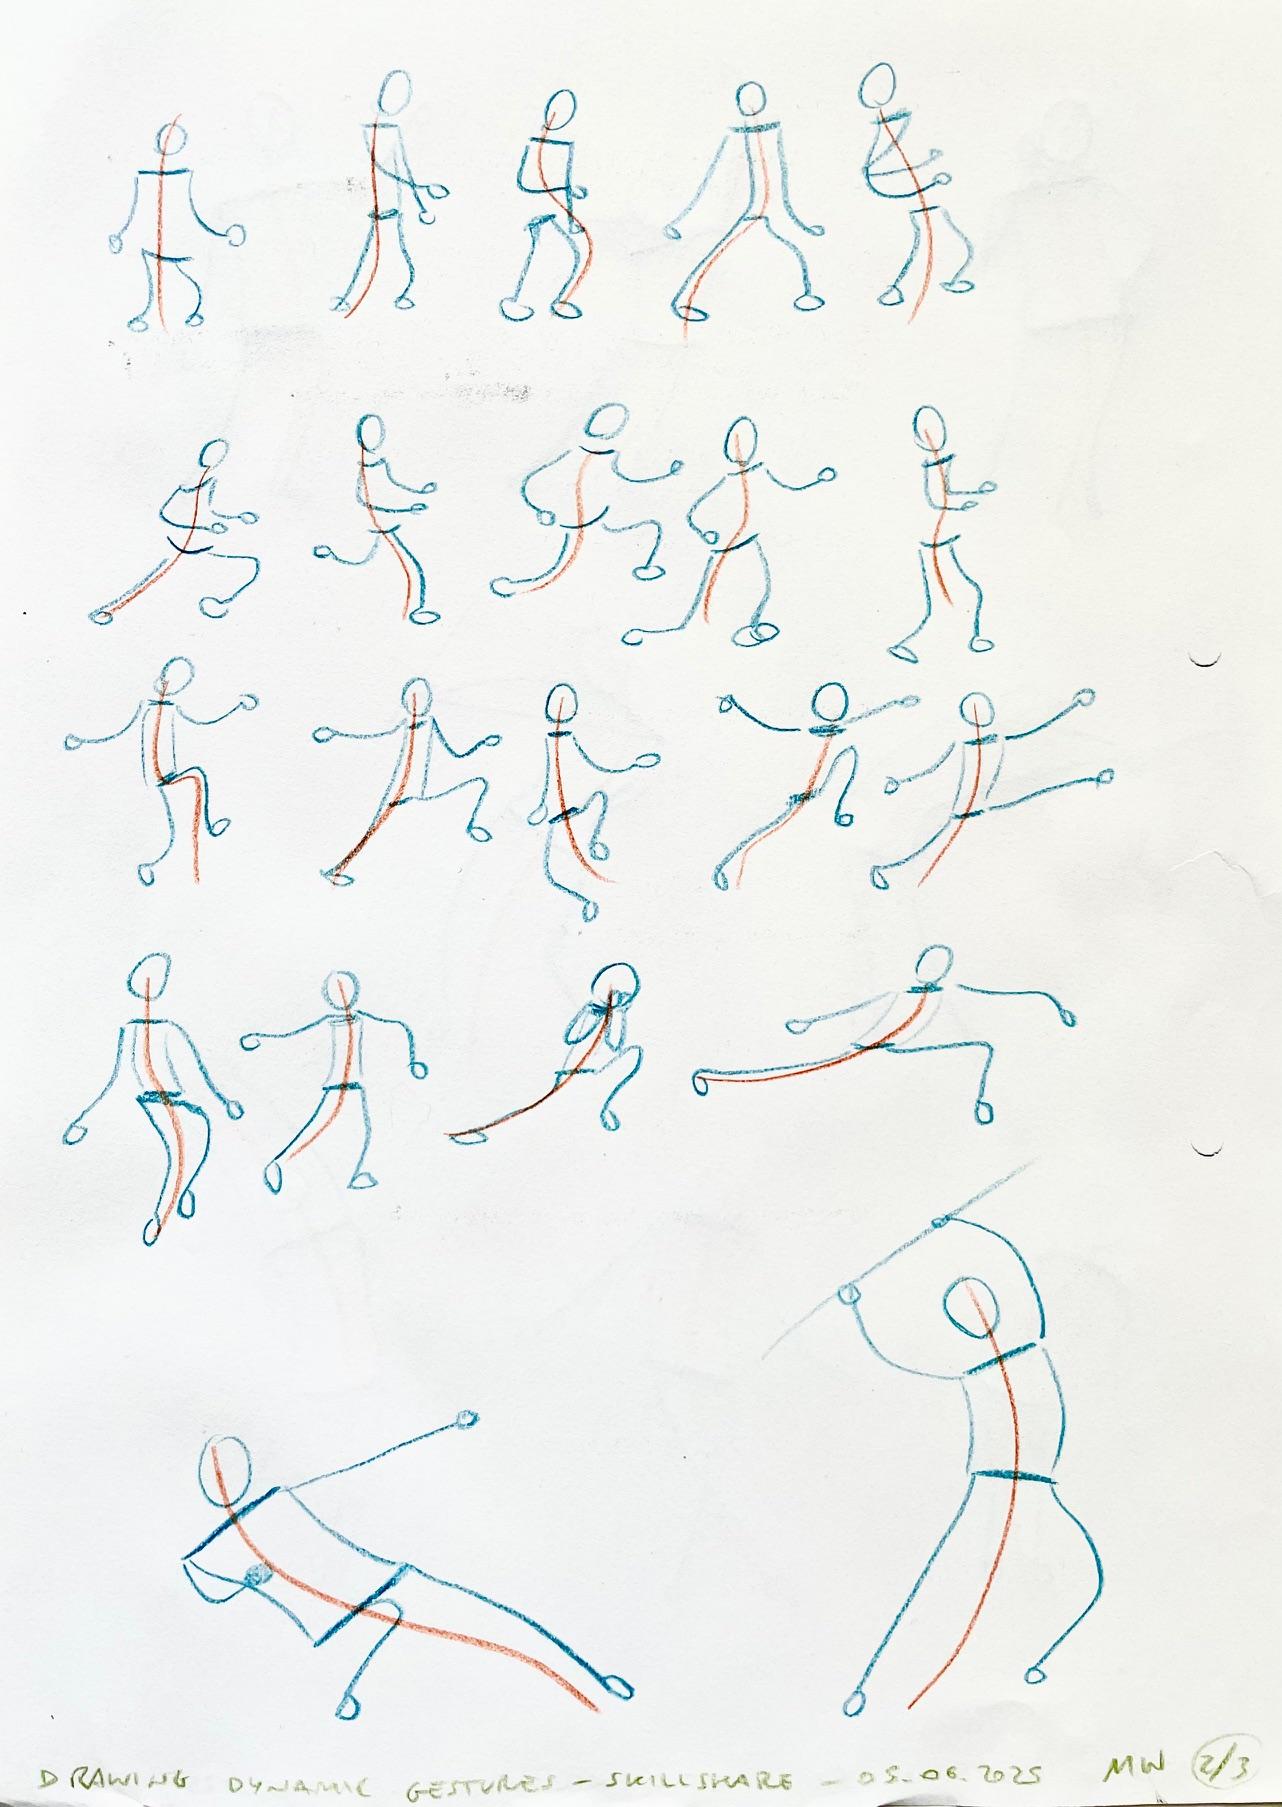 DRAWING DYNAMIC GESTURES - SKILLSHARE - 05.06.2025 MW 2/3